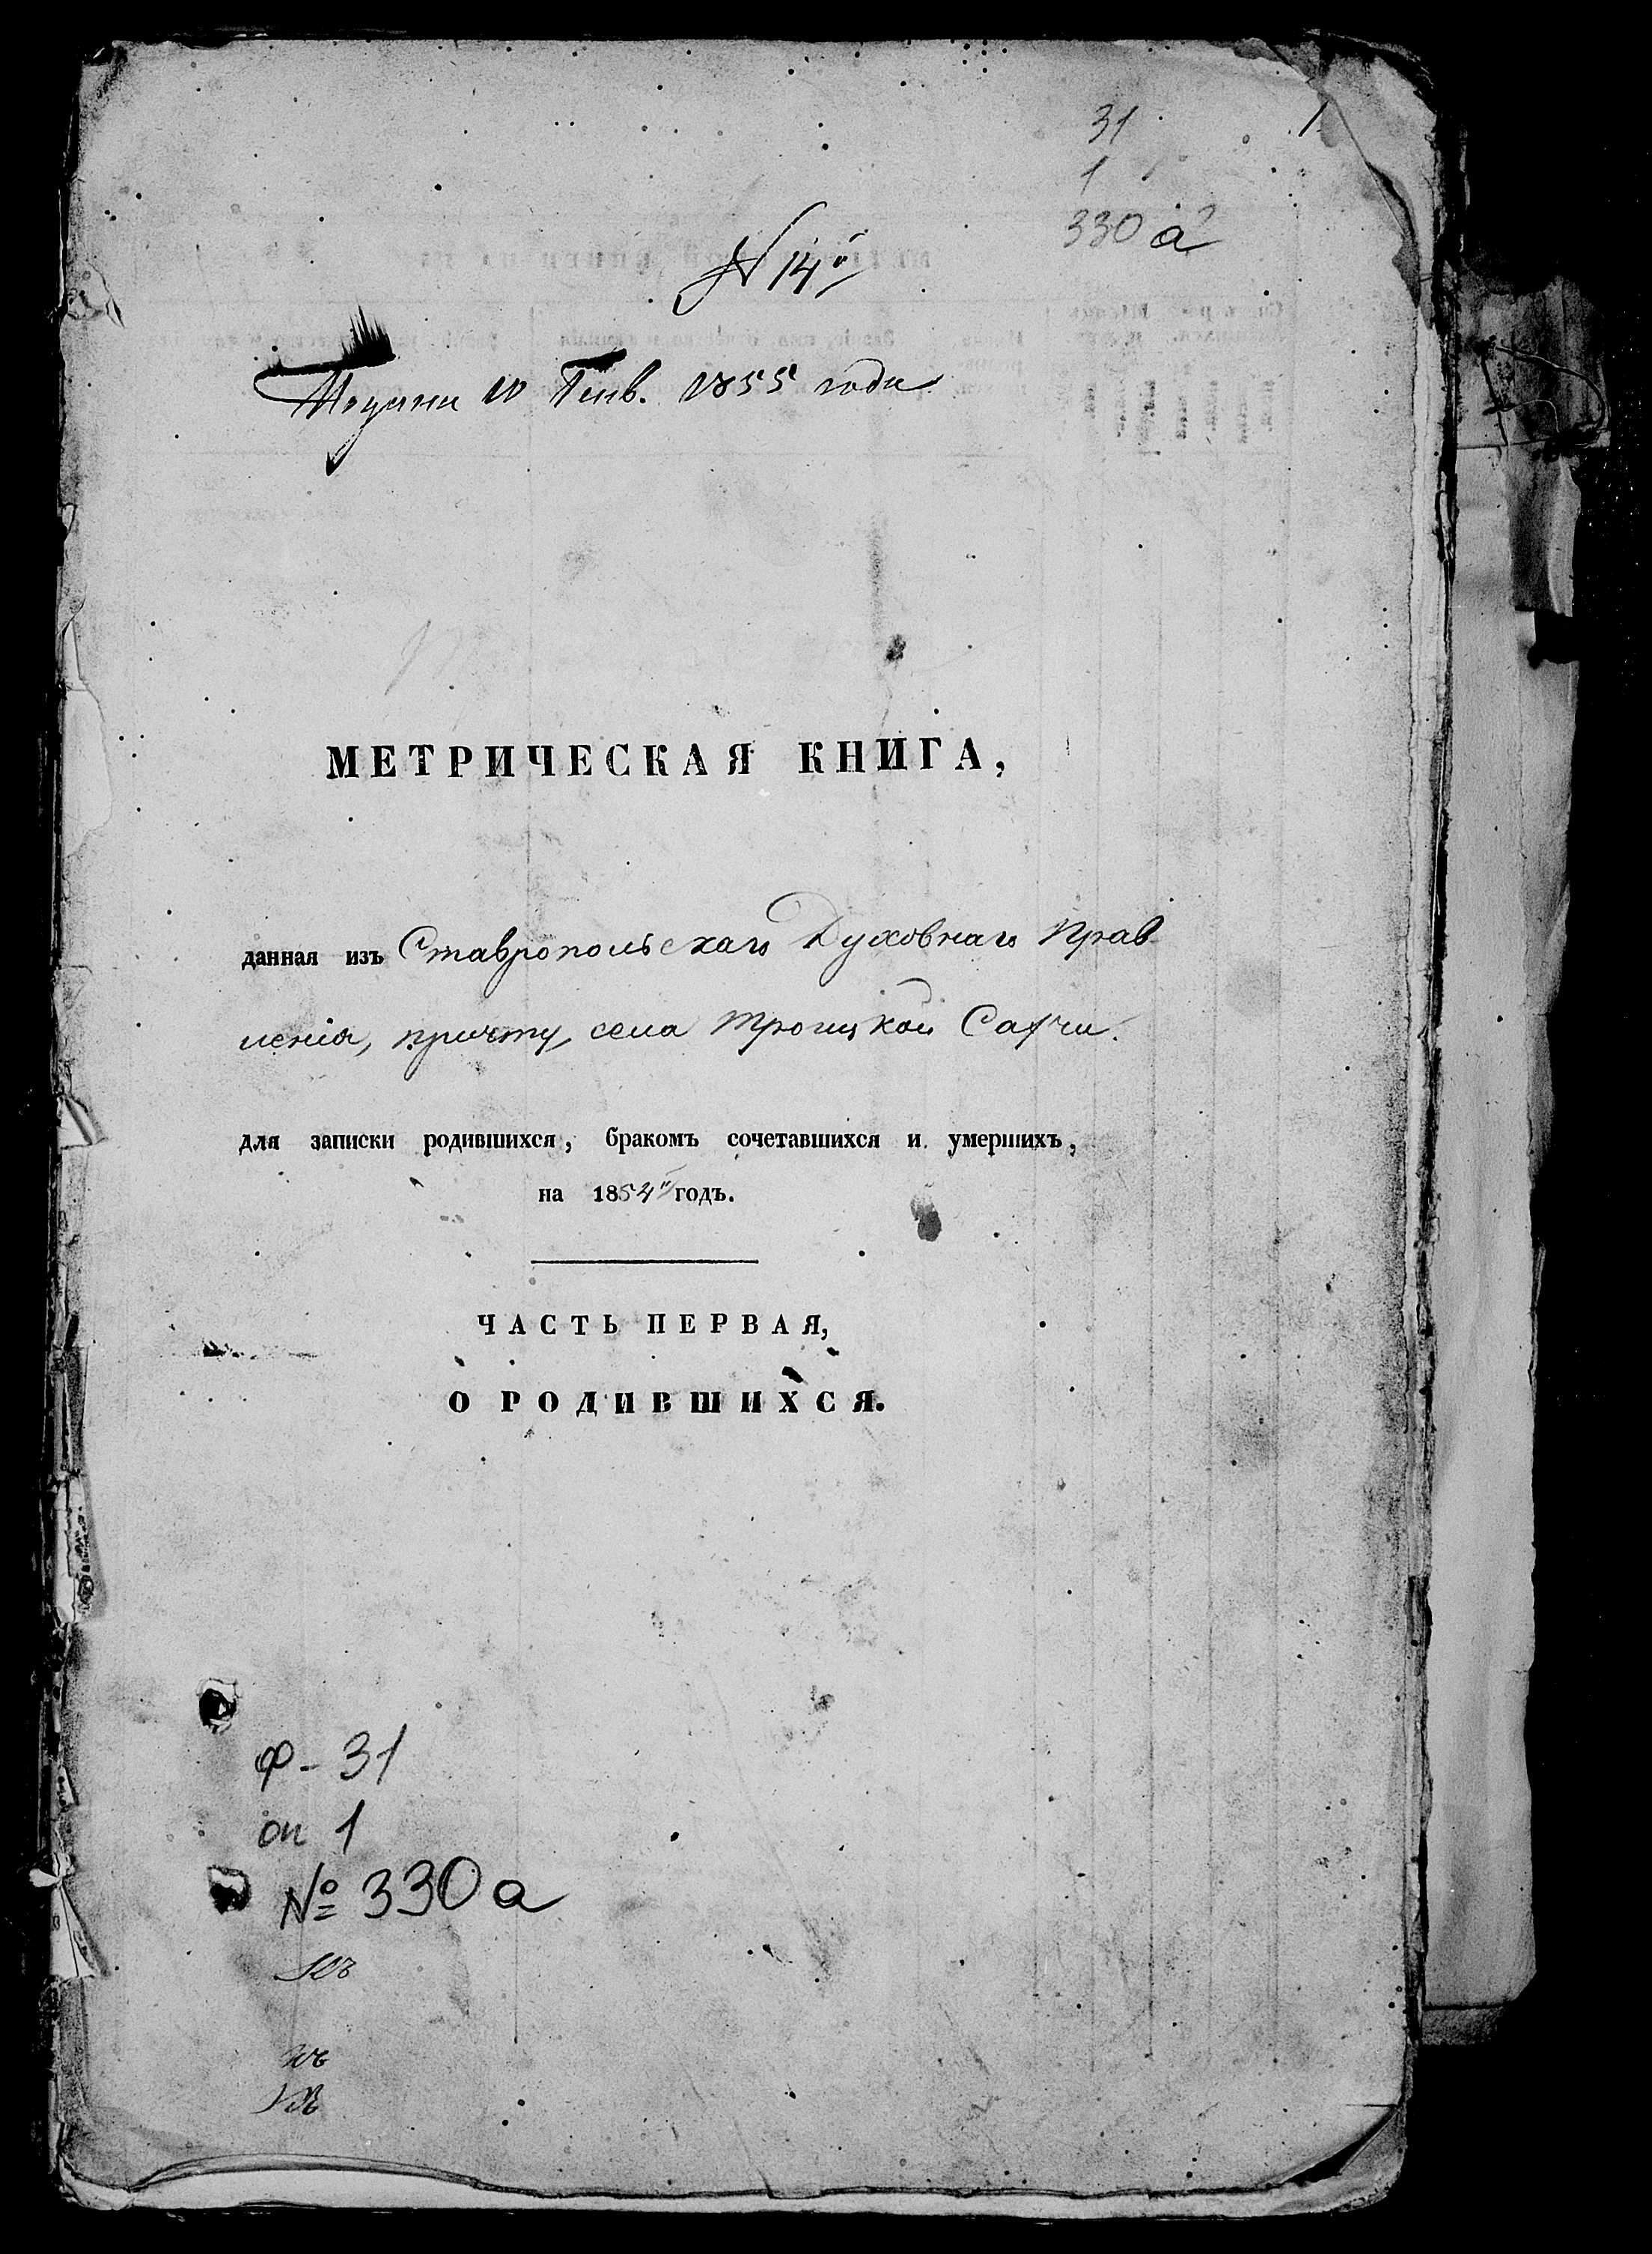 31
1
1
330 а
N 14й
10 Генв. 1855 года
МЕТРИЧЕСКАЯ КНИГА,
данная изъ Ставропольскаго Духовнаго Прав
ленія, причту села Троицкой Сахчи.
для записки родившихся, бракомъ сочетавшихся и умершихъ,
на 1854й годъ.
ЧАСТЬ ПЕРВАЯ,
О РОДИВШИХСЯ.
Ф-31
оп 1
№ 330 а